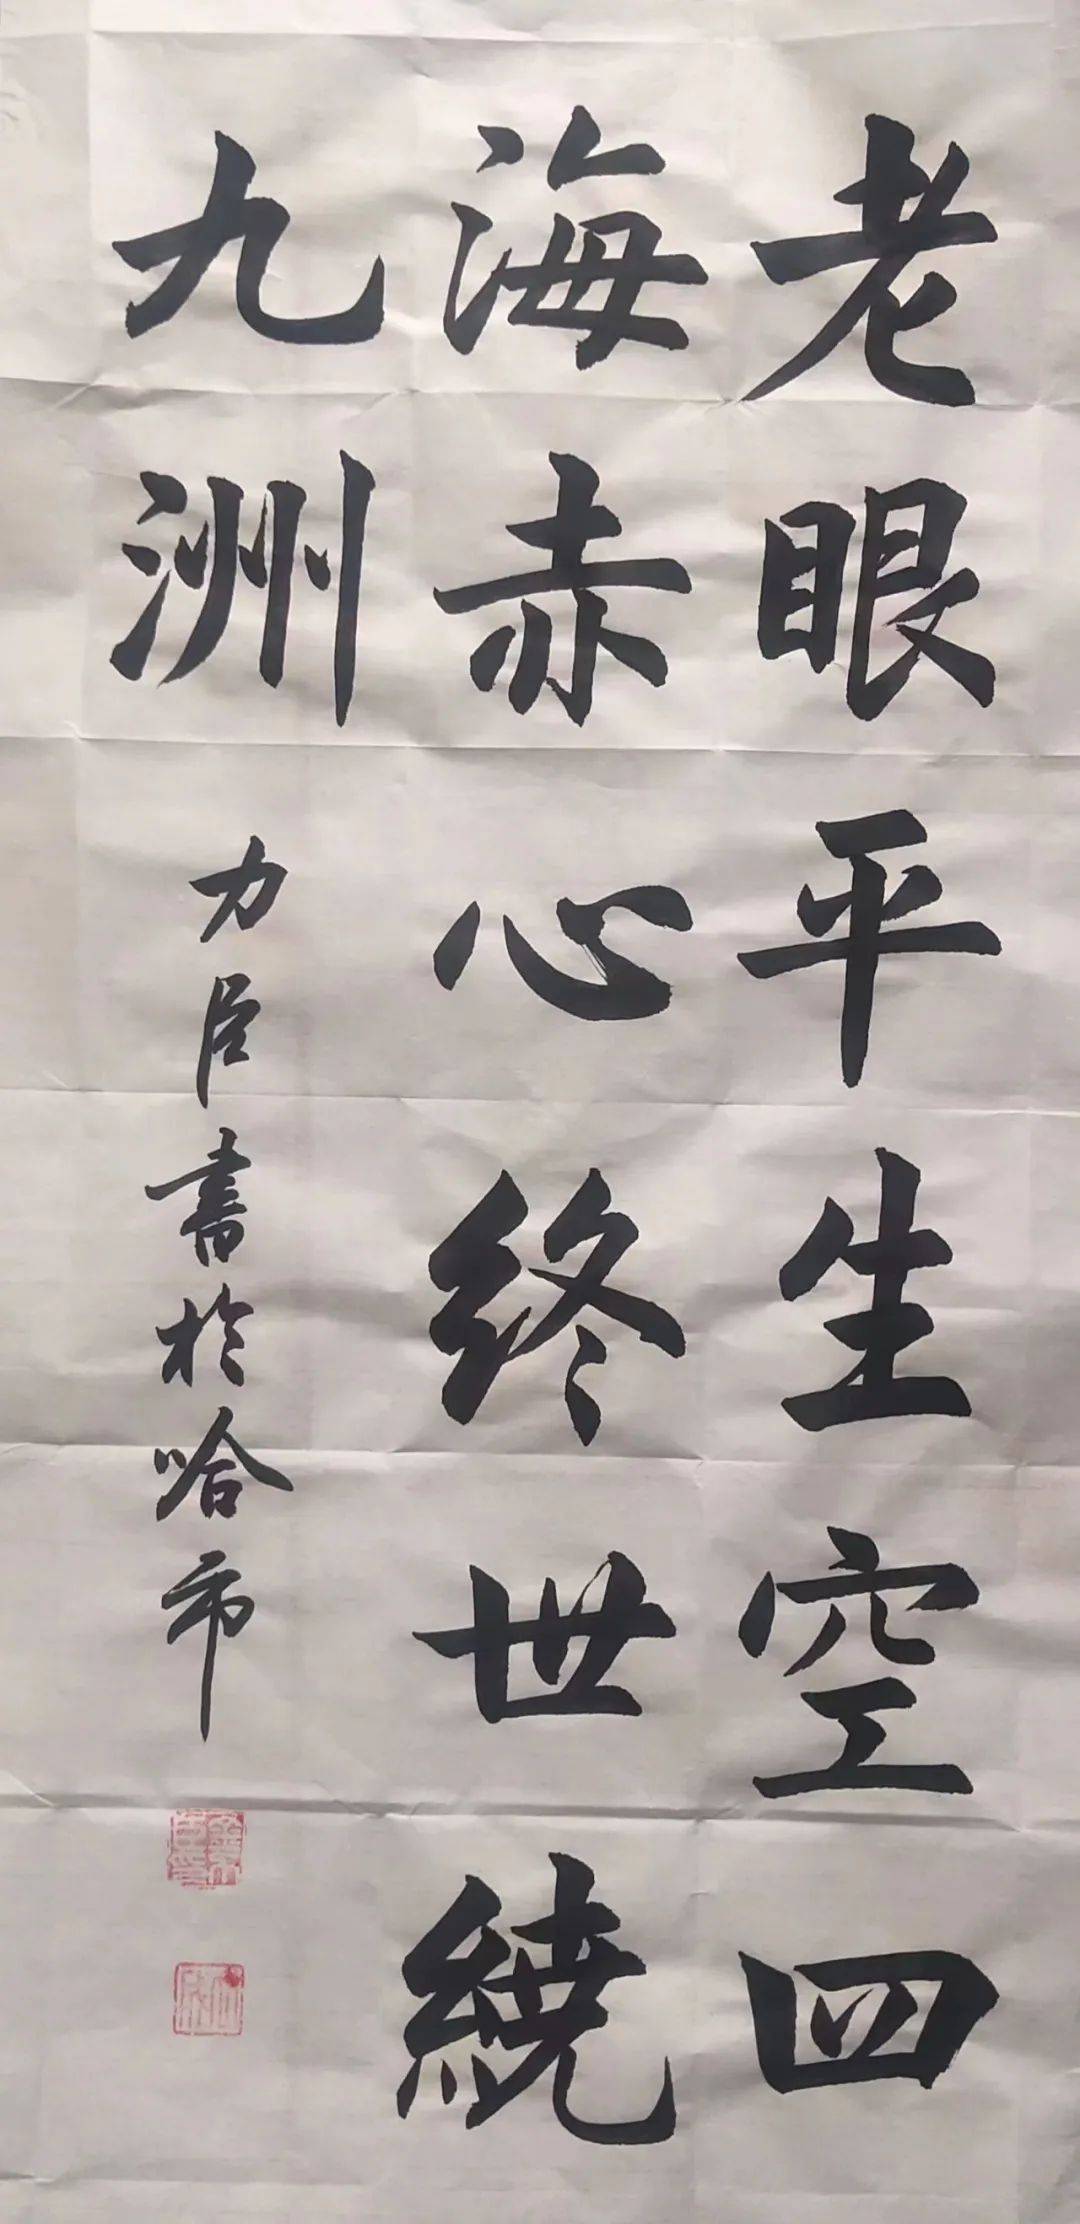 老眼平生空四
海赤心终世繞
九洲
力臣書於哈市